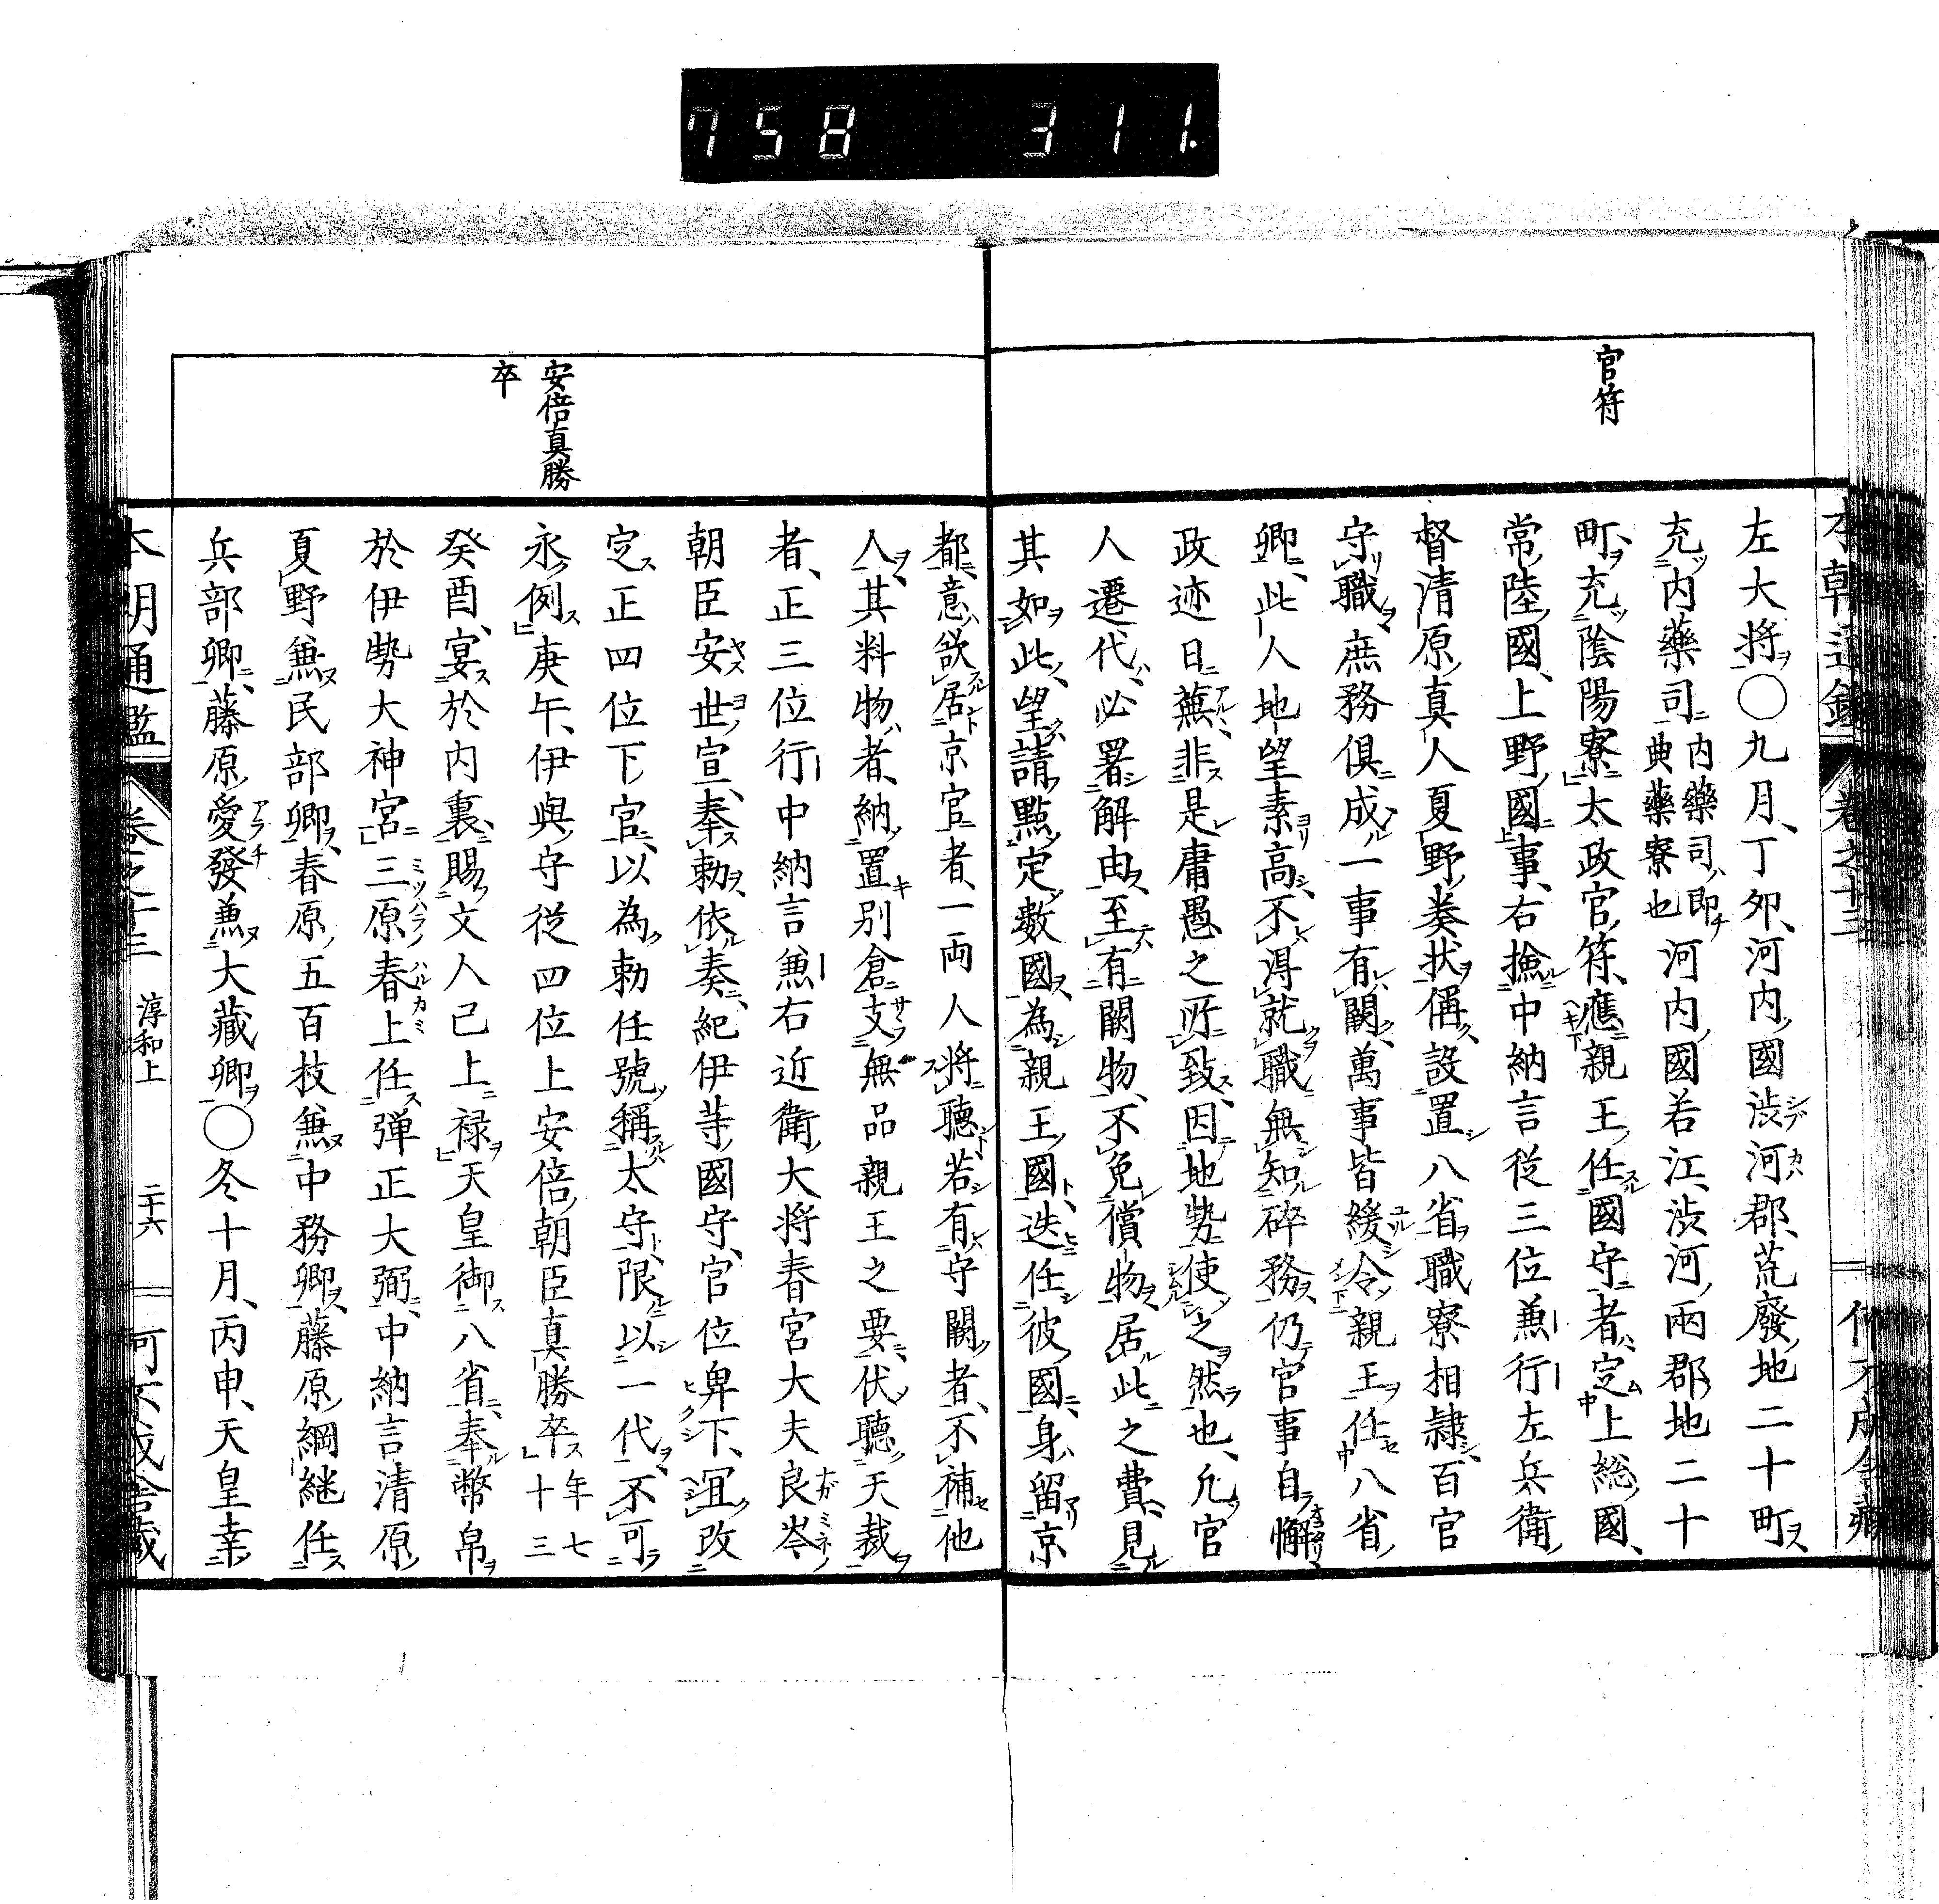 758 311.
官符
左大将○九月、丁夘、河内國渋河郡、荒廢地二十町
充内藥司内藥司即典藥寮也河内國若江、渋河兩郡地二十
町、充陰陽寮太政官符、應親王任國守者、定上総國、
常陸國、上野國事、右撿中納言従三位兼行左兵衛
督清原真人夏野奏状偁、設置八省職寮相隷、百官
守職庶務倶成一事有闕萬事皆緩令親王任八省
卿、此人地望素高、不得就職無知碎務、仍官事自懈、
政迹日蕪、非是庸愚之所致、因地勢使之然也、凢官
人遷代、必署解由、至有闕物、不免償物、居此之費、見
其如此、望請點定數國、為親王國、迭任彼國、身留京
都、意欲居京官者、一両人将聴若有守闕者、不補他
人、其料物者、納置別倉支無品親王之要、伏聴天裁
者、正三位行中納言兼右近衛大将春宮大夫良岑
朝臣安世宣、奉勅、依奏、紀伊等國守、官位卑下、冝改
定正四位下官、以為勅任號稱太守、限以一代、不可
永例庚午、伊與守従四位上安倍朝臣真勝卒年七十三
癸酉、宴於内裏、賜文人已上禄天皇御八省、奉幣帛
於伊勢大神宮三原春上任弾正大弼、中納言清原
夏野兼民部卿、春原五百枝兼中務卿、藤原綱継任
兵部卿、藤原愛發兼大藏卿○冬十月、丙申、天皇幸
安倍真勝
卒
本朝通鑑
卷之十三
淳和上
二十六